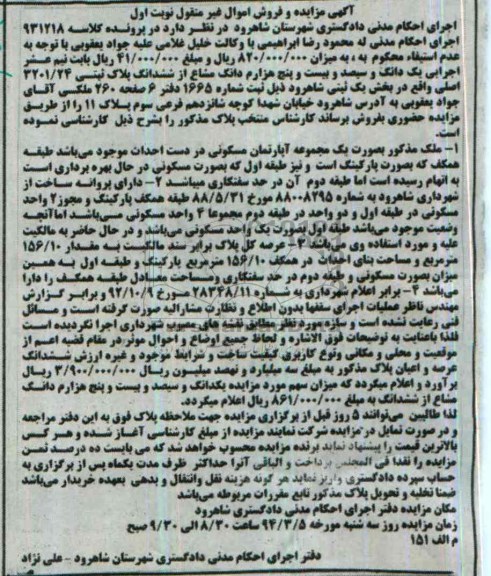 آگهی مزایده و فروش اموال غیر منقول نوبت اول
اجرای احکام مدنی دادگستری شهرستان شاهرود در نظر دارد در پرونده کلاسه ۹۳۱۲۱۸
اجرای احکام مدنی له محمود رضا ابراهیمی با وکالت خلیل غلامی علیه جواد یعقوبی با توجه به
عدم استیفاء محکوم به ، به میزان ۸۲۰/۰۰۰/۰۰۰ ریال و مبلغ ۴۱/۰۰۰/۰۰۰ ریال بابت نیم عشر
اجرایی یک دانگ و سیصد و بیست و پنج هزارم دانگ مشاع از ششدانگ پلاک ثبتی ۳۲۰۱/۲۴
اصلی واقع در بخش یک ثبتی شاهرود ذیل ثبت شماره ۱۶۶۵ دفتر ۶ صفحه ۲۶۰ ملکی آقای
جواد یعقوبی به آدرس شاهرود خیابان شهدا کوچه شانزدهم فرعی سوم پلاک ۱۱ را از طریق
مزایده حضوری بفروش برساند کارشناس منتخب پلاک مذکور را بشرح ذیل کارشناسی نموده
است.
۱- ملک مذکور بصورت یک مجموعه آپارتمان مسکونی در دست احداث موجود می‌باشد طبقه
همکف که بصورت پارکینگ است و نیز طبقه اول که بصورت مسکونی در حال بهره برداری است
به اتمام رسیده است اما طبقه دوم آن در حد سفتکاری میباشد ۲- دارای پروانه ساخت از
شهرداری شاهرود به شماره ۸۸۰۰۸۲۹۵ مورخ ۸۸/۵/۳۱ طبقه همکف پارکینگ و مجوز ۲ واحد
مسکونی در طبقه اول و دو واحد در طبقه دوم مجموعا ۴ واحد مسکونی می‌باشد اما آنچه
وضعیت موجود می‌باشد طبقه اول بصورت یک واحد مسکونی می‌باشد و در حال حاضر به مالکیت
علیه و مورد استفاده وی می‌باشد ۳- عرصه کل پلاک برابر سند مالکیت به مقدار ۱۵۶/۱۰
مترمربع و مساحت بنای احداث در همکف ۱۵۶/۱۰ مترمربع پارکینگ و طبقه اول به همین
میزان بصورت مسکونی و طبقه دوم در حد سفتکاری ومساحت معادل طبقه همکف را دارا
می‌باشد ۴- برابر اعلام شهرداری به شماره ۲۸۳۴۸/۱۱ مورخ ۹۲/۱۰/۹ و برابر گزارش
مهندس ناظر عملیات اجرای سقفها بدون اطلاع و نظارت مشارالیه صورت گرفته است و مسائل
فنی رعایت نشده است و سازه مورد نظر مطابق نقشه های مصوب شهرداری اجرا نگردیده است
فلذا باعنایت به توضیحات فوق الاشاره و لحاظ جمیع اوضاع و احوال موثر در مقام قضیه اعم از
موقعیت و محلی و مکانی ونوع کاربری کیفیت ساخت و شرایط موجود و غیره ارزش ششدانگ
عرصه و اعیان پلاک مذکور به مبلغ سه میلیارد و نهصد میلیون ریال ۳/۹۰۰/۰۰۰/۰۰۰ ریال
برآورد و اعلام میگردد که میزان سهم مورد مزایده یکدانگ و سیصد و بیست و پنج هزارم دانگ
مشاع از ششدانگ به مبلغ ۸۶۱/۰۰۰/۰۰۰ ریال اعلام میگردد.
لذا طالبین می‌توانند ۵ روز قبل از برگزاری مزایده جهت ملاحظه پلاک فوق به این دفتر مراجعه
و در صورت تمایل در مزایده شرکت نمایند مزایده از مبلغ کارشناسی آغاز شده و هر کس
بالاترین قیمت را پیشنهاد نماید برنده مزایده محسوب خواهد شد که می بایست ده درصد ثمن
مزایده را نقدا فی المجلس پرداخت و الباقی آنرا حداکثر ظرف مدت یکماه پس از برگزاری به
حساب سپرده دادگستری واریز نماید هر گونه هزینه نقل وانتقال و بدهی بعهده خریدار می‌باشد
ضمنا تخلیه و تحویل پلاک مذکور تابع مقررات مربوطه می‌باشد
مکان مزایده دفتر اجرای احکام مدنی دادگستری شاهرود
زمان مزایده روز سه شنبه مورخه ۹۴/۳/۵ ساعت ۸/۳۰ الی ۹/۳۰ صبح
م الف ۱۵۱
دفتر اجرای احکام مدنی دادگستری شهرستان شاهرود - علی نژاد